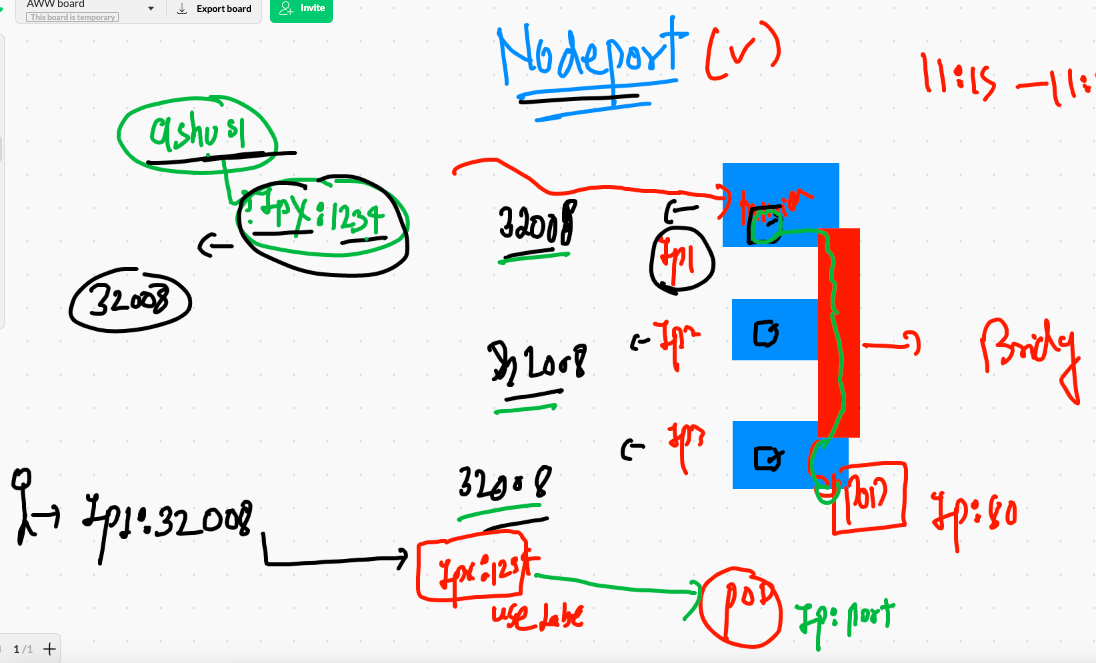 AWW board
This board is temporary
Export board
Invite
Nodeport (v)
11:15 – 11:
ashu s1
IpX:1234
32008
32008
Ip1
32008
Ip2
Bridg
Ip3
32008
Ip1:32008
POD
Ip:80
Ipx:1234
use labe
POD
Ip:port
1/1